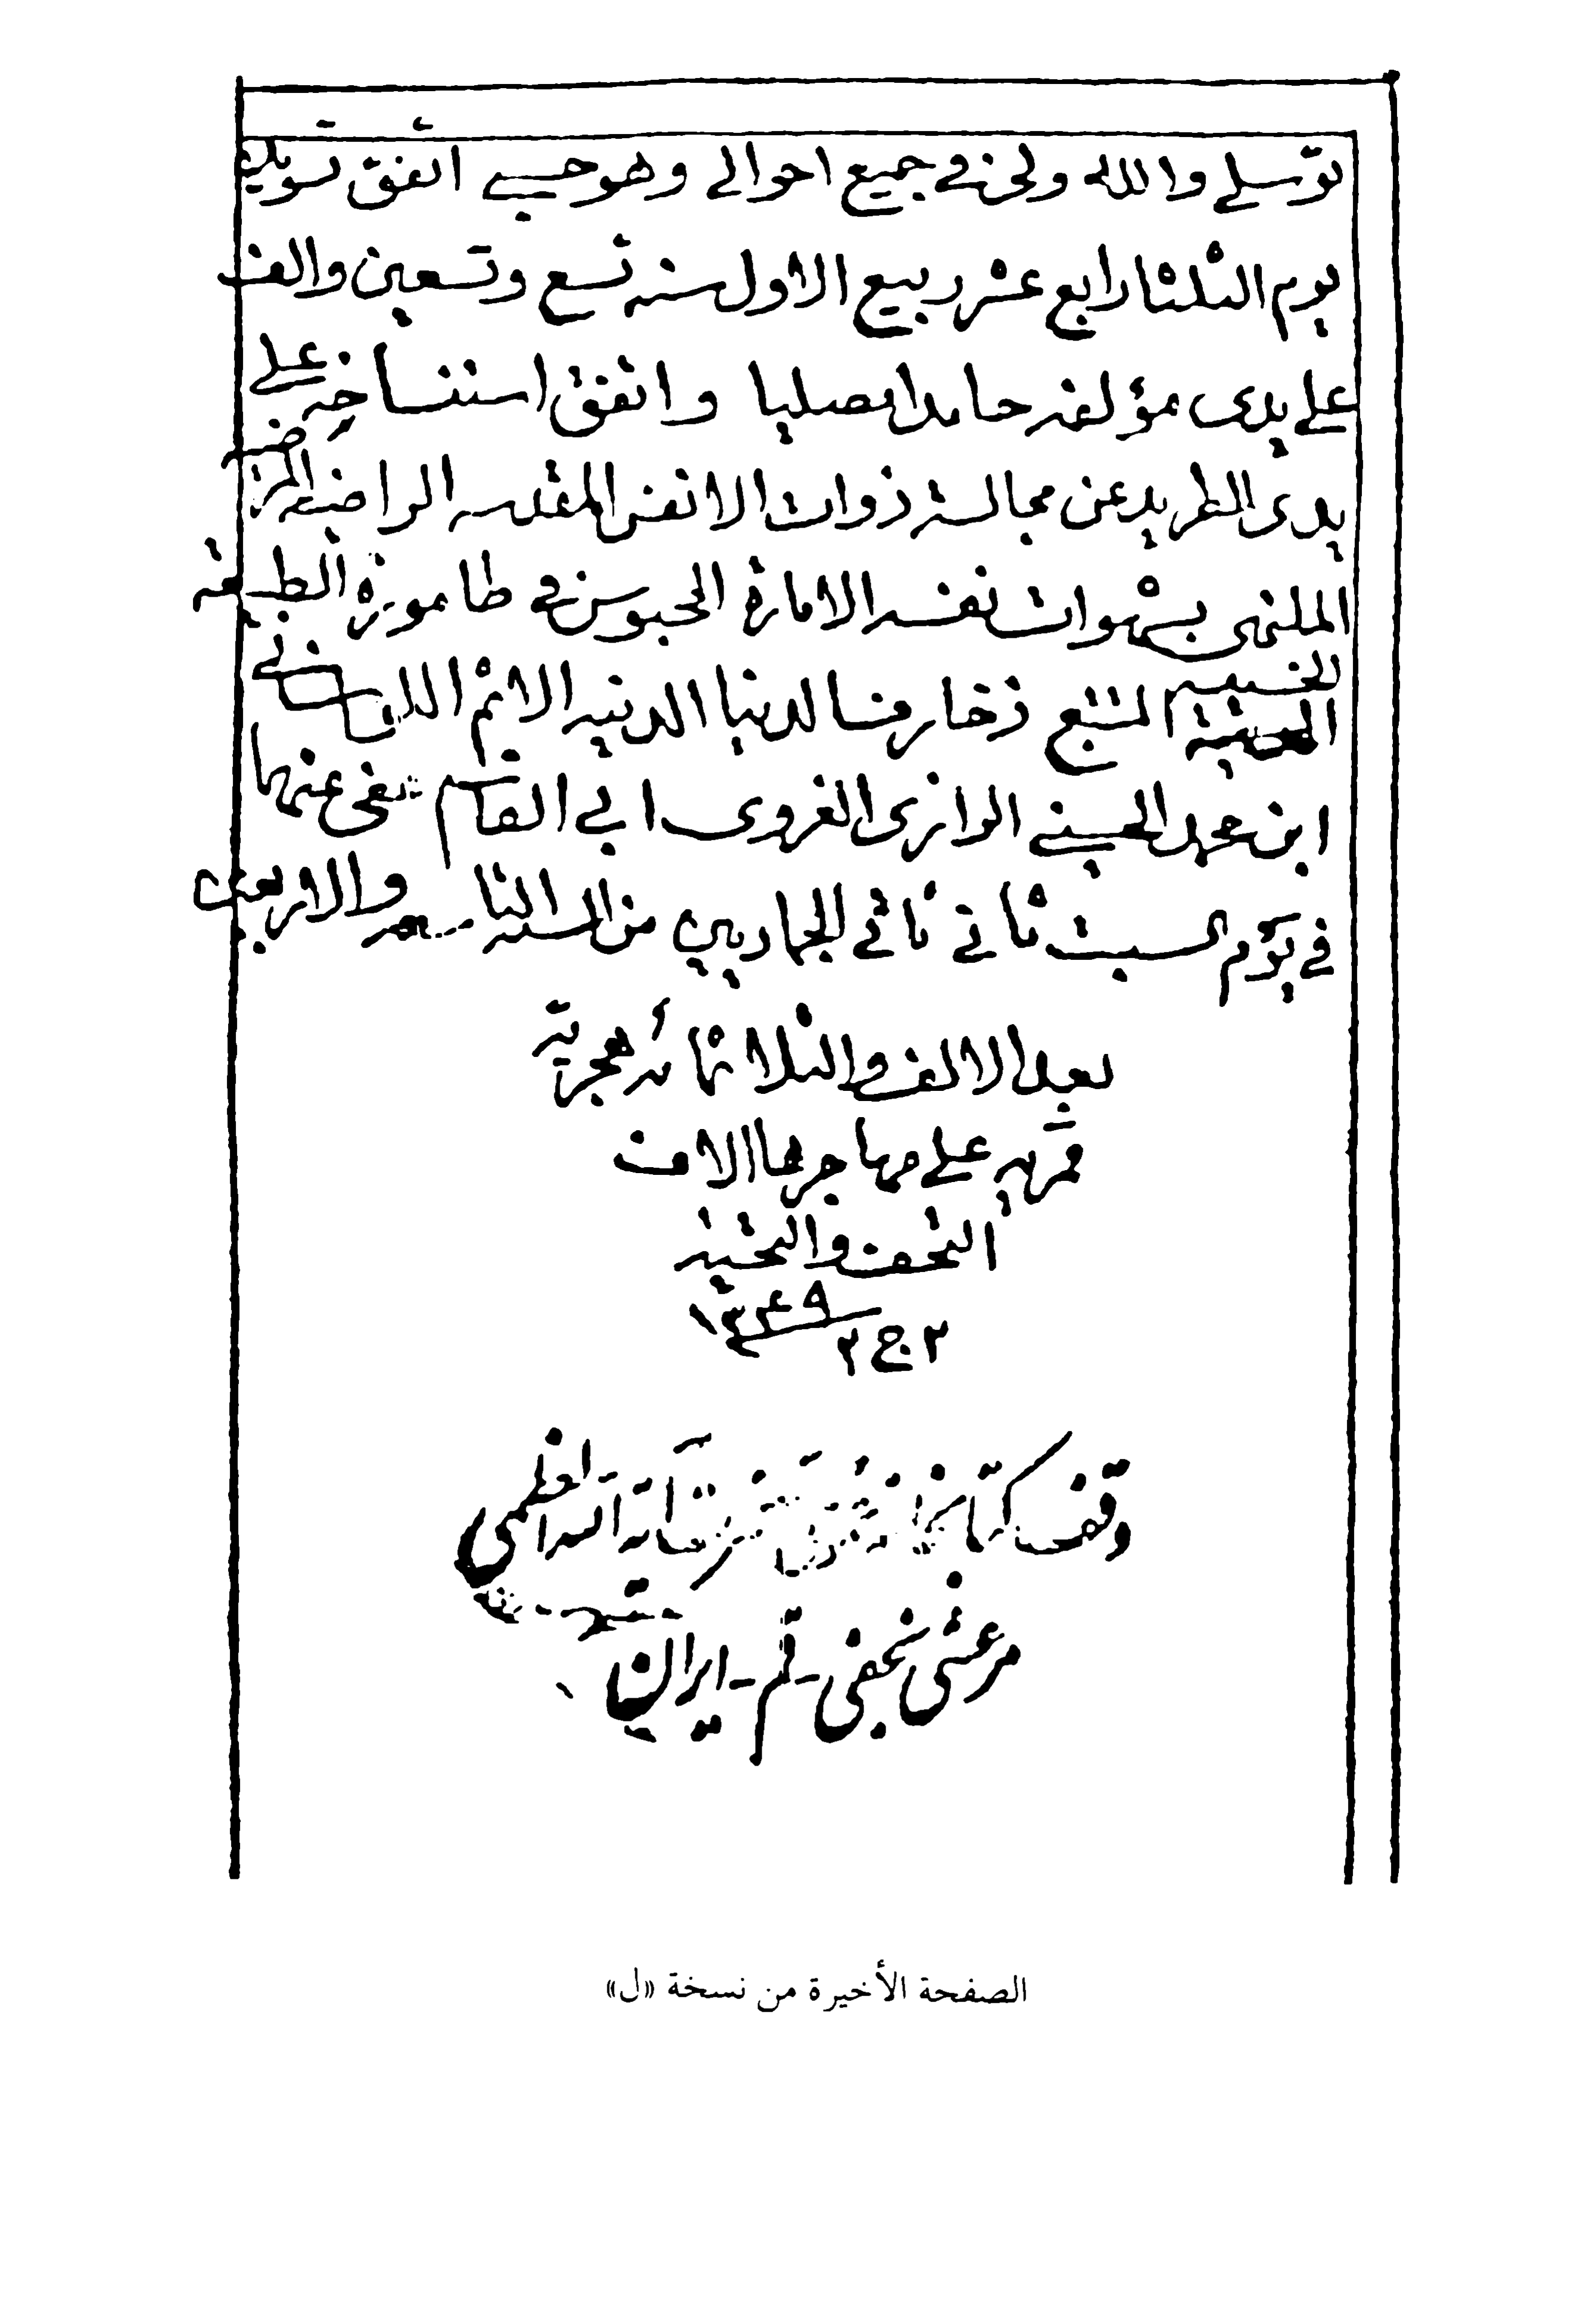 توسلي والله ولي في جميع احوالي وهو حسبي اتفق تسويده
يوم الثلثا رابع عشر ربيع الاول سنه تسع وتسعين والف
على يدى مؤلفه حامدا مصليا واتفق استنساخه على
يدى الطريد عن مجالسة ذوات الانفس المقدسه الراضيه المرضيه
الملتهى بشهوات نفسه الامارة المحبوس في طامورة الطبيعه
الخسيسه
المتتبع زخارف الدنيا الدنيه الاثم
ابن محمد الحسيني الرازى الغروى ابي القاسم عفى عنهما
في يوم السبت ثاني ثاني الجماديين من السنة التاسعه والاربعين
بعد الالف والثلاثمائة هجرية
قمريه على مهاجرها الاف
التحف والتحيه
٢ ج ٢ ١٣٤٩
وقف كتابخانه آية الله العظمى
مرعشى نجفى - قم - ايران
الصفحة الأخيرة من نسخة «ل»